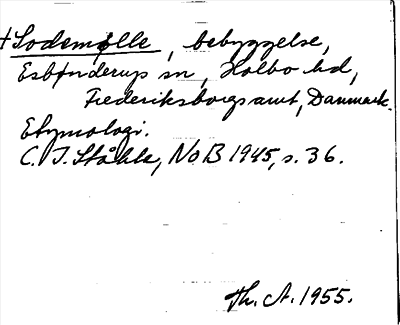 †Sodemølle, bebyggelse,
Esbønderup sn, Holbo hd,
Frederiksborgs amt, Danmark.
Etymologi.
C. I. Ståhle, NoB 1945, s. 36.
Th. A. 1955.